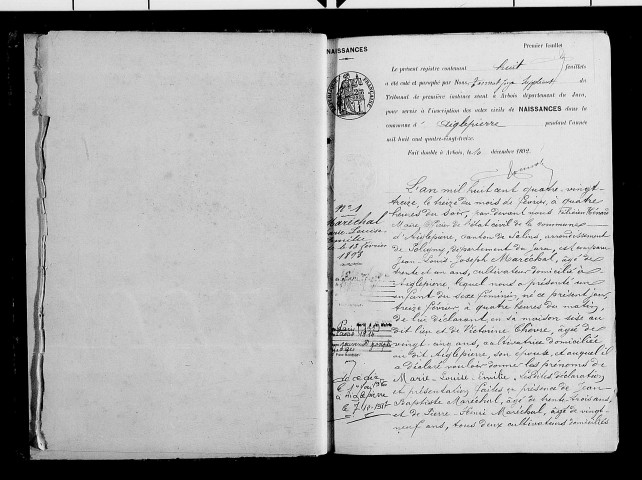 Premier feuillet
NAISSANCES
Le présent registre contenant huit feuillets
a été coté et paraphé par Nous juge suppléant du
Tribunal de première instance séant à Arbois département du Jura,
pour servir à l'inscription des actes civils de NAISSANCES dans la
commune d' Aiglepierre pendant l'année
mil huit cent quatre-vingt-treize.
Fait double à Arbois, le décembre 1892.
RÉPUBLIQUE FRANÇAISE
N° 1
Maréchal
Marie-Louise-
Emilie
le 13 février
1893
L'an mil huit cent quatre-vingt-
treize, le treize du mois de février, à quatre
heures du soir, par devant nous
Maire, officier de l'état civil de la commune
d'Aiglepierre, canton de Salins, arrondissement
de Poligny, département du Jura, est comparu
Jean-Louis-Joseph Maréchal, âgé de
trente et un ans, cultivateur domicilié à
Aiglepierre, lequel nous a présenté un
enfant du sexe féminin, né ce présent jour,
treize février à quatre heures du matin,
de lui déclarant, en sa maison sise au
dit lieu et de Victorine Chèvre, âgée de
vingt-cinq ans, cultivatrice domiciliée
au dit Aiglepierre, son épouse, et auquel il
a déclaré vouloir donner les prénoms de
Marie-Louise-Emilie, lesdites déclaration
et présentation faites en présence de Jean-
Baptiste Maréchal, âgé de trente-trois ans,
et de Pierre-Henri Maréchal, âgé de vingt-
neuf ans, tous deux cultivateurs domiciliés